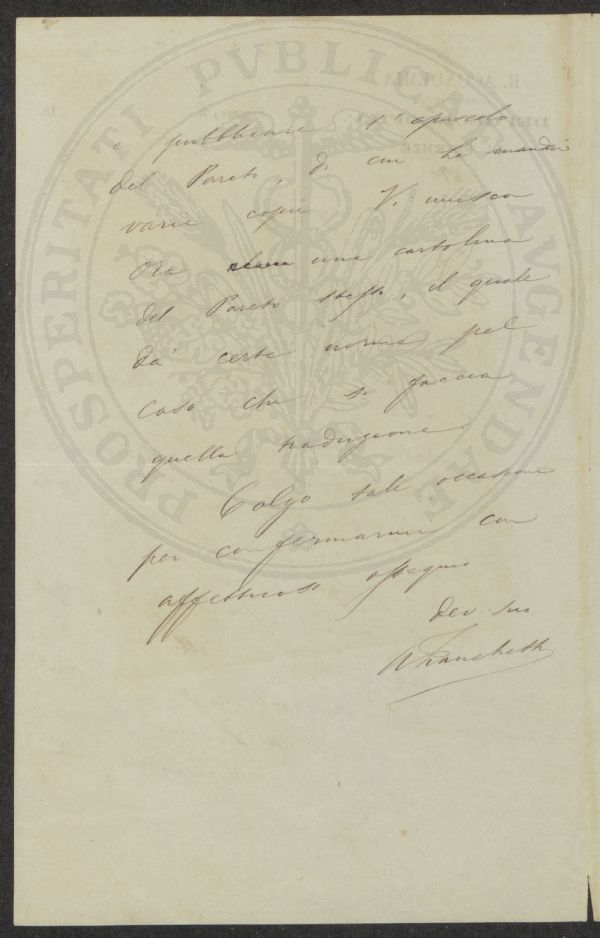 PROSPERITATI PVBLICAE AVGENDAE
R. ACCADEMIA
e pubblicare l'opuscolo
del Pareto, di cui Le mandai
varie copie. V. unisco
ora una cartolina
del Pareto stesso, il quale
dà certe norme pel
caso che si faccia
quella traduzione
Colgo tale occasione
per confermarmi con
affettuoso ossequio
dev suo
Franchetti